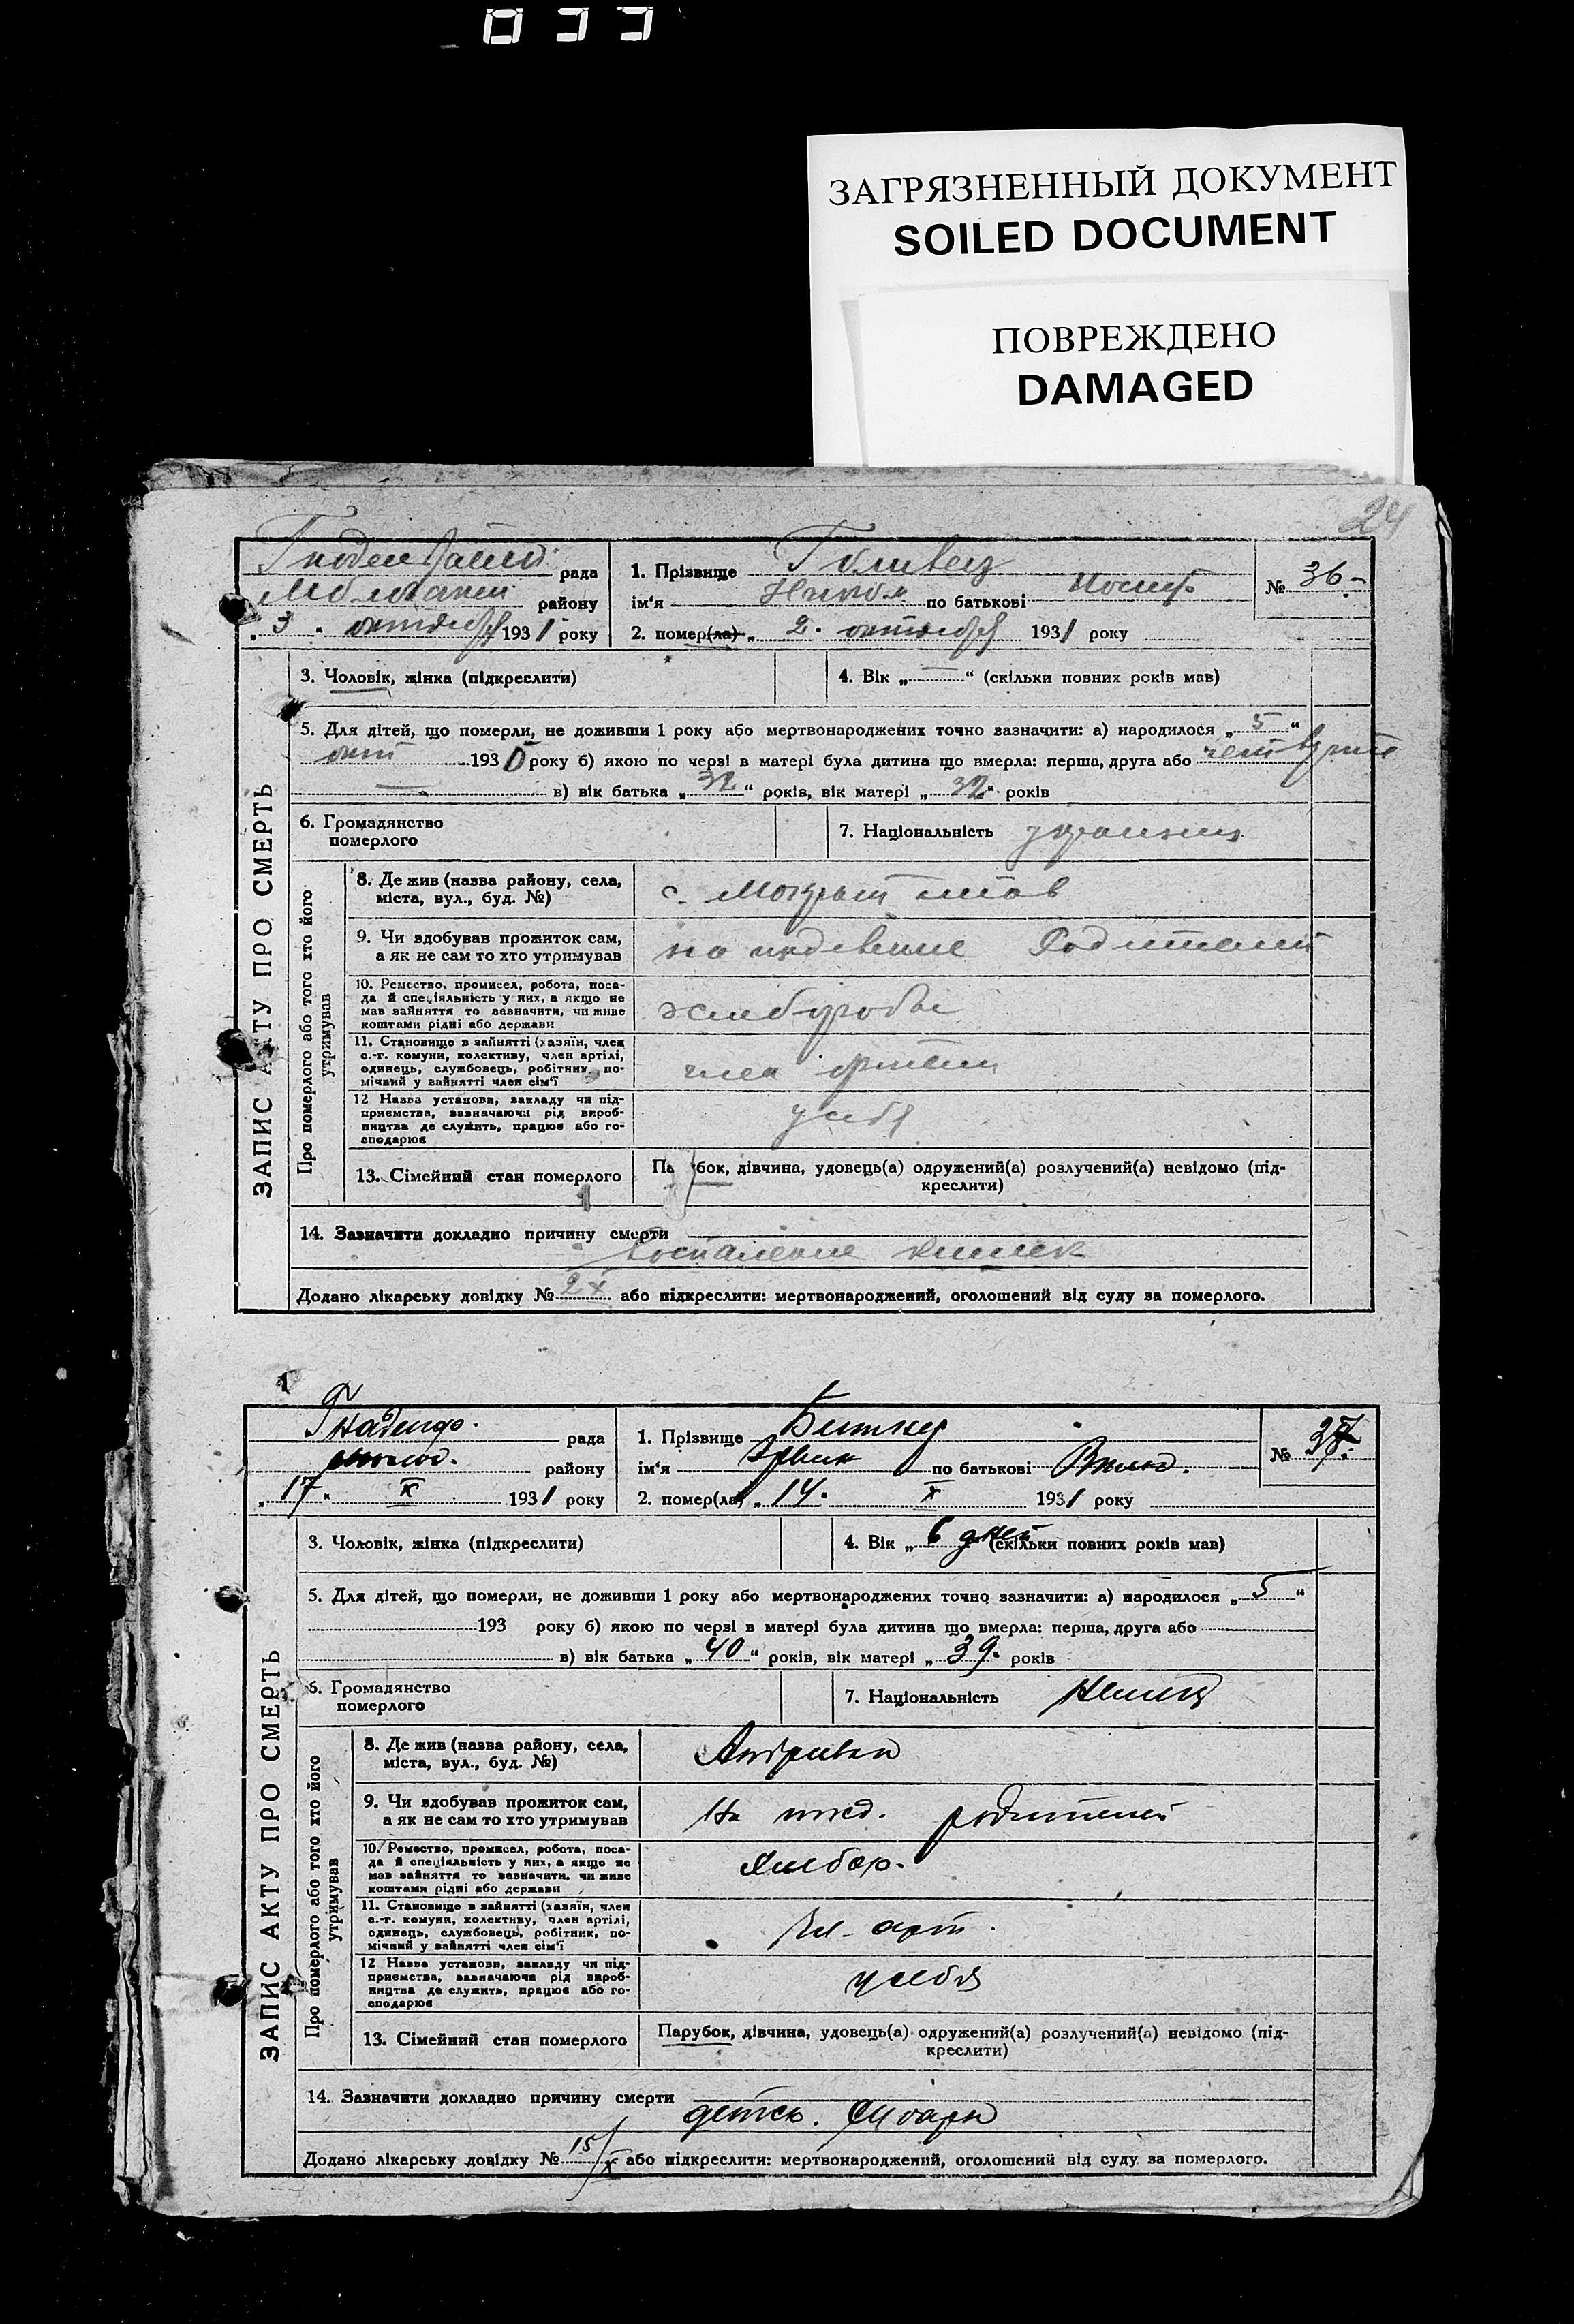 033
ЗАГРЯЗНЕННЫЙ ДОКУМЕНТ
SOILED DOCUMENT
ПОВРЕЖДЕНО
DAMAGED
24
рада
району
„ 3 " октября 1931 року
1. Прізвище
ім'я Никол по батькові Иосиф.
2. помер(ла) „ 2. октября 1931 року
№ 36-
ЗАПИС АКТУ ПРО СМЕРТЬ
3. Чоловік, жінка (підкреслити)
4. Вік „ — " (скільки повних років мав)
5. Для дітей, що померли, не доживши 1 року або мертвонароджених точно зазначити: а) народилося „ 5 "
окт 1930 року б) якою по черзі в матері була дитина що вмерла: перша, друга або
— в) вік батька „ 32 " років, вік матері „ 32 " років
6. Громадянство
померлого
7. Національність украинец
Про померлого або того хто його
утримував
8. Де жив (назва району, села,
міста, вул., буд. №)
с.
9. Чи здобував прожиток сам,
а як не сам то хто утримував
на иждевение Родителей
10. Ремество, промисел, робота, поса-
да й спеціяльність у них, а якщо не
мав зайняття то зазначити, чи живе
коштами рідні або держави
хлеборобы
11. Становище в зайнятті (хазяїн, член
с.-г. комуни, колективу, член артілі,
одинець, службовець, робітник, по-
мічний у зайнятті член сім'ї
член артели
12 Назва установи, закладу чи під-
приємства, зазначаючи рід вироб-
ництва де служить, працює або го-
сподарює
у себя
13. Сімейний стан померлого
Па бок, дівчина, удовець(а) одружений(а) розлучений(а) невідомо (під-
креслити)
14. Зазначити докладно причину смерти
Воспаление кишек
Додано лікарську довідку № 2 X або підкреслити: мертвонароджений, оголошений від суду за померлого.
рада
молоч. району
„ 17. X 1931 року
1. Прізвище Биткер
ім'я Эрвин по батькові Вильг.
2. помер(ла) „ 14. X 1931 року
№ 37.
ЗАПИС АКТУ ПРО СМЕРТЬ
3. Чоловік, жінка (підкреслити)
4. Вік „ 6 дней (скільки повних років мав)
5. Для дітей, що померли, не доживши 1 року або мертвонароджених точно зазначити: а) народилося „ 5 "
193 року б) якою по черзі в матері була дитина що вмерла: перша, друга або
в) вік батька „ 40 " років, вік матері „ 39 " років
6. Громадянство
померлого
7. Національність немец
Про померлого або того хто його
утримував
8. Де жив (назва району, села,
міста, вул., буд. №)
9. Чи здобував прожиток сам,
а як не сам то хто утримував
На ижд. родителей
10. Ремество, промисел, робота, поса-
да й спеціяльність у них, а якщо не
мав зайняття то зазначити, чи живе
коштами рідні або держави
Хлебор.
11. Становище в зайнятті (хазяїн, член
с.-г. комуни, колективу, член артілі,
одинець, службовець, робітник, по-
мічний у зайнятті член сім'ї
Чл. арт.
12 Назва установи, закладу чи під-
приємства, зазначаючи рід вироб-
ництва де служить, працює або го-
сподарює
у себя
13. Сімейний стан померлого
Парубок, дівчина, удовець(а) одружений(а) розлучений(а) невідомо (під-
креслити)
14. Зазначити докладно причину смерти
детск.
Додано лікарську довідку № 15/X або підкреслити: мертвонароджений, оголошений від суду за померлого.